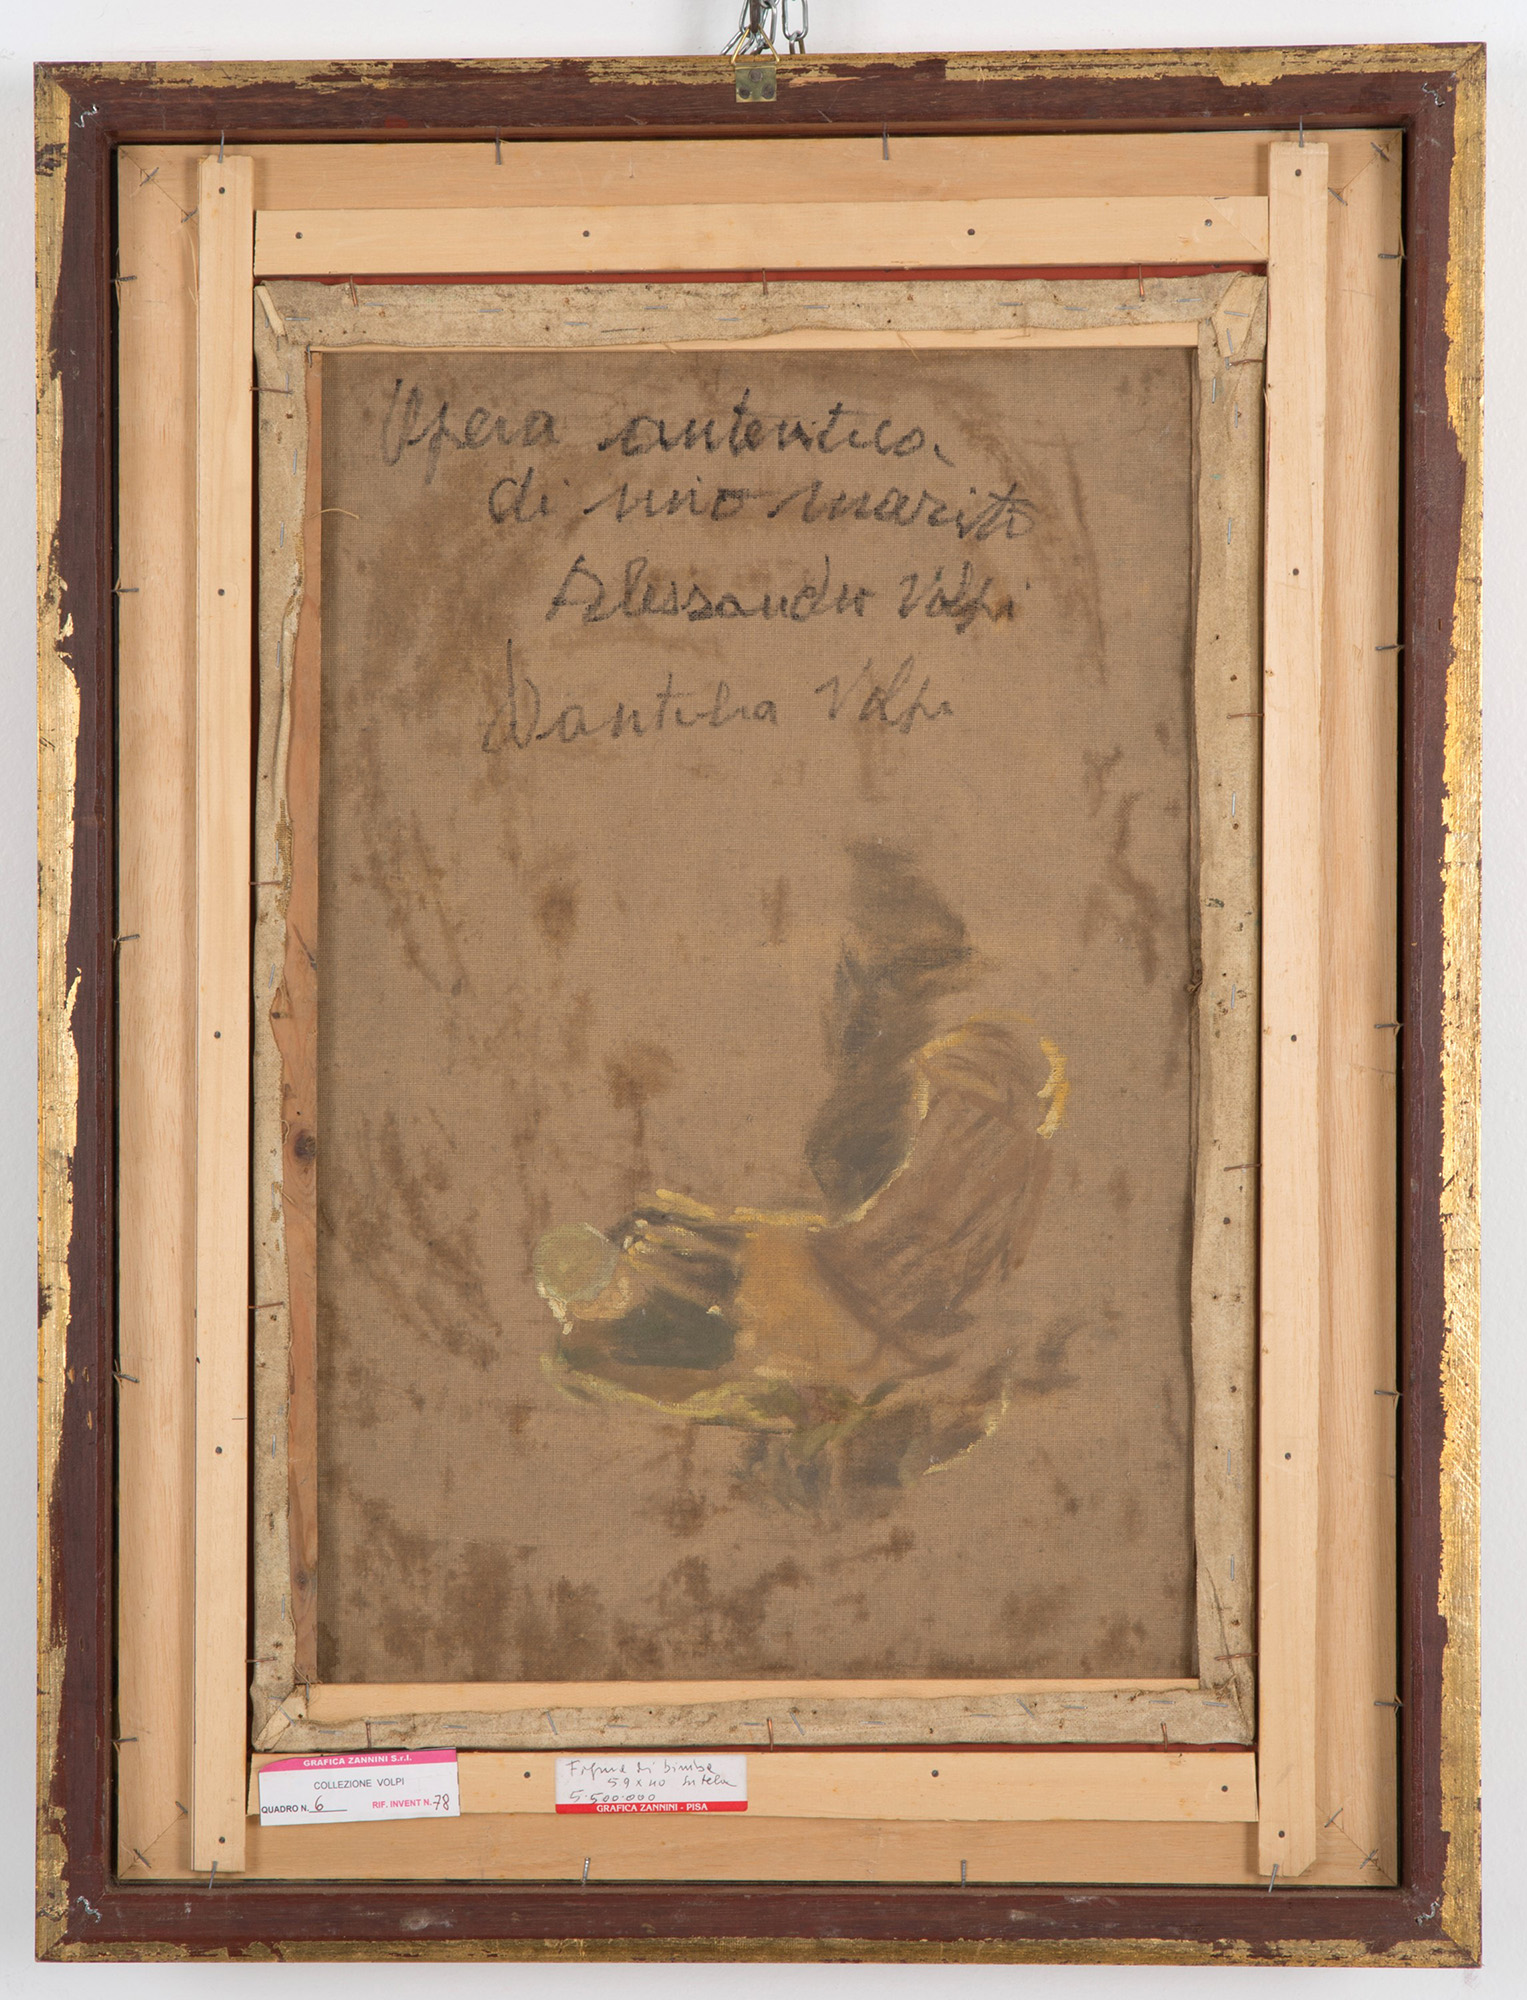 Opera autentica
di mio marito
Alessandro Volpi
Volpi
GRAFICA ZANNINI S.r.l.
COLLEZIONE VOLPI
QUADRO N. 6
RIF. INVENT N. 78
Figura di bimba
59 x 40 su tela
5.500.000
GRAFICA ZANNINI - PISA